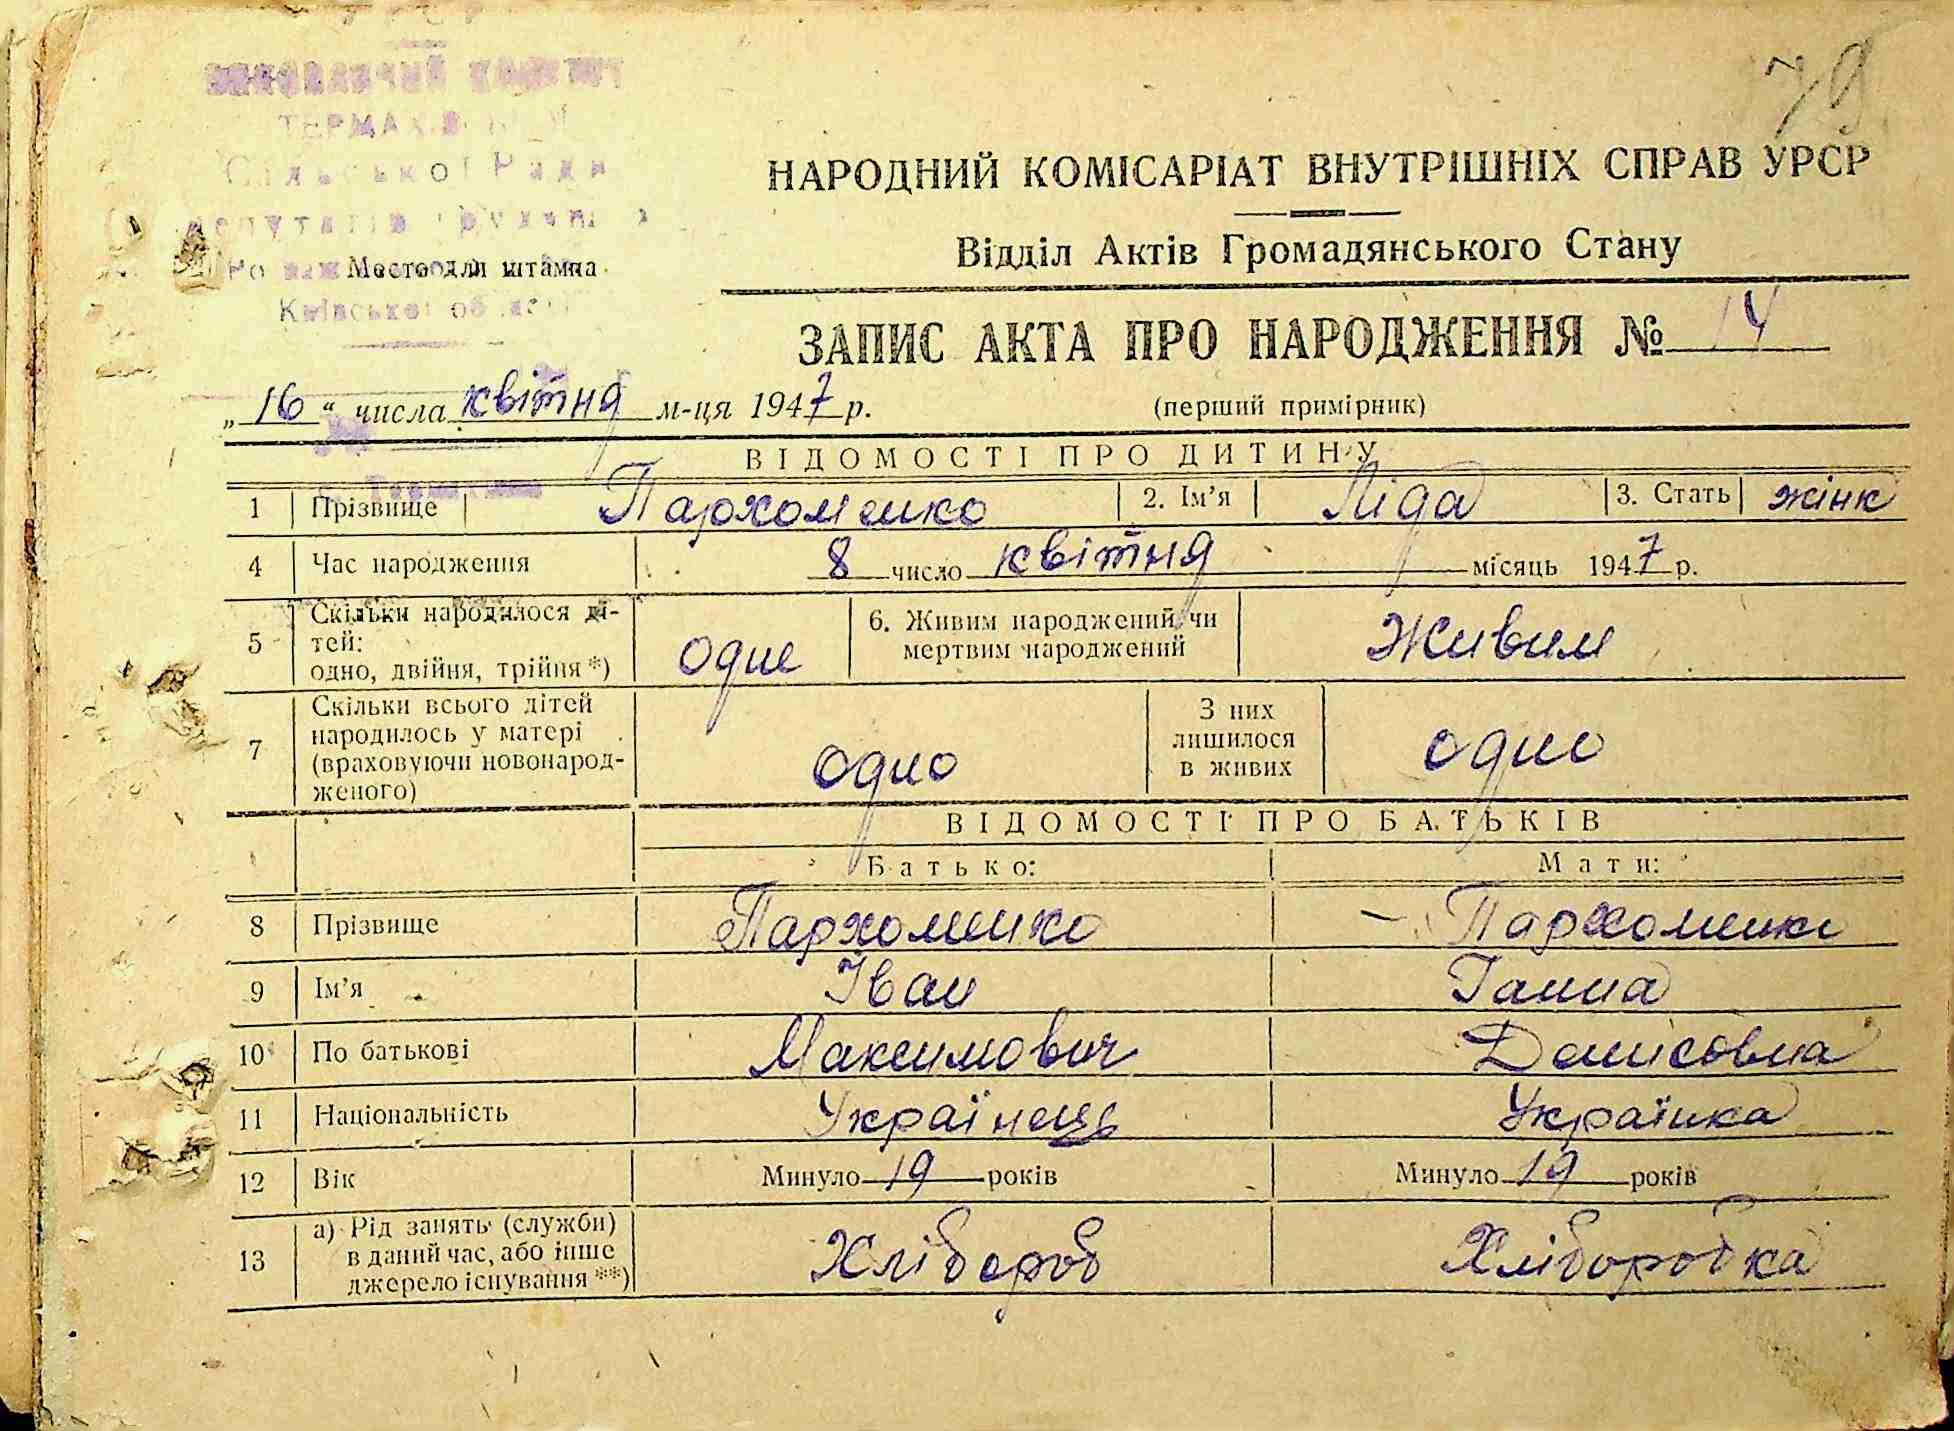 79
Сільської Ради
депутатів
Место для штампа
Київської області
НАРОДНИЙ КОМІСАРІАТ ВНУТРІШНІХ СПРАВ УРСР
Відділ Актів Громадянського Стану
ЗАПИС АКТА ПРО НАРОДЖЕННЯ № 14
„16“ числа квітня м-ця 1947 р.
(перший примірник)
ВІДОМОСТІ ПРО ДИТИНУ
1 Прізвище Пархоменко 2. Ім'я Ліда 3. Стать жінк
4 Час народження 8 число квітня місяць 1947 р.
5 Скільки народилося ді-
тей:
одно, двійня, трійня *) одне
6. Живим народжений чи
мертвим народжений Живим
7 Скільки всього дітей
народилось у матері
(враховуючи новонарод-
женого) одно
З них
лишилося
в живих одно
ВІДОМОСТІ ПРО БАТЬКІВ
Батько: Мати:
8 Прізвище Пархоменко Пархоменко
9 Ім'я Іван Ганна
10 По батькові Максимович Денисовна
11 Національність Українець Українка
12 Вік Минуло 19 років Минуло 19 років
13 а) Рід занять (служби)
в даний час, або інше
джерело існування **) Хлібороб Хліборобка